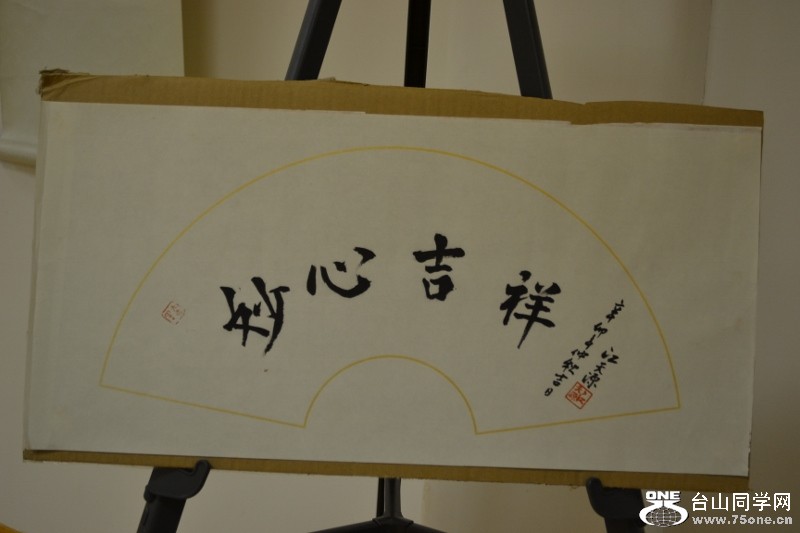 心吉祥
辛卯年仲秋吉日
江天源
ONE
台山同学网
www.75one.cn